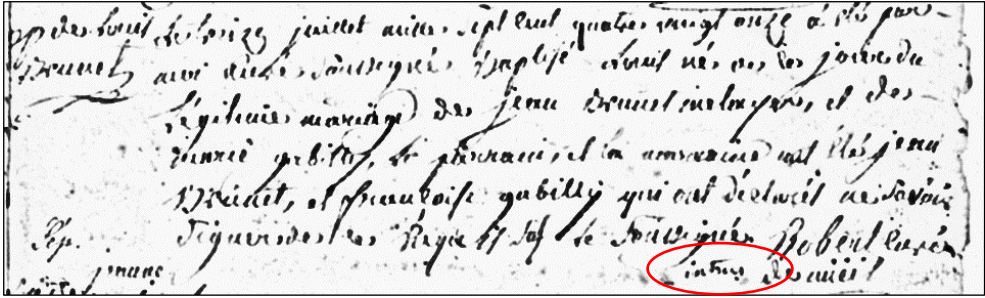 Bp de Louis Le treize juillet mille sept cent quatre vingt onze á été par
Brunet moi curé soussigné Baptisé Louis né de ce jour du
légitime mariage de jean Brunet metayer, et de
marie gabilly, le parrain, et la marraine ont été jean
Brunet, et françoise gabilly qui ont déclaré ne savoir
signer de ce requis sauf le soussigné Robert curé
Sep.
jeanne intrus de